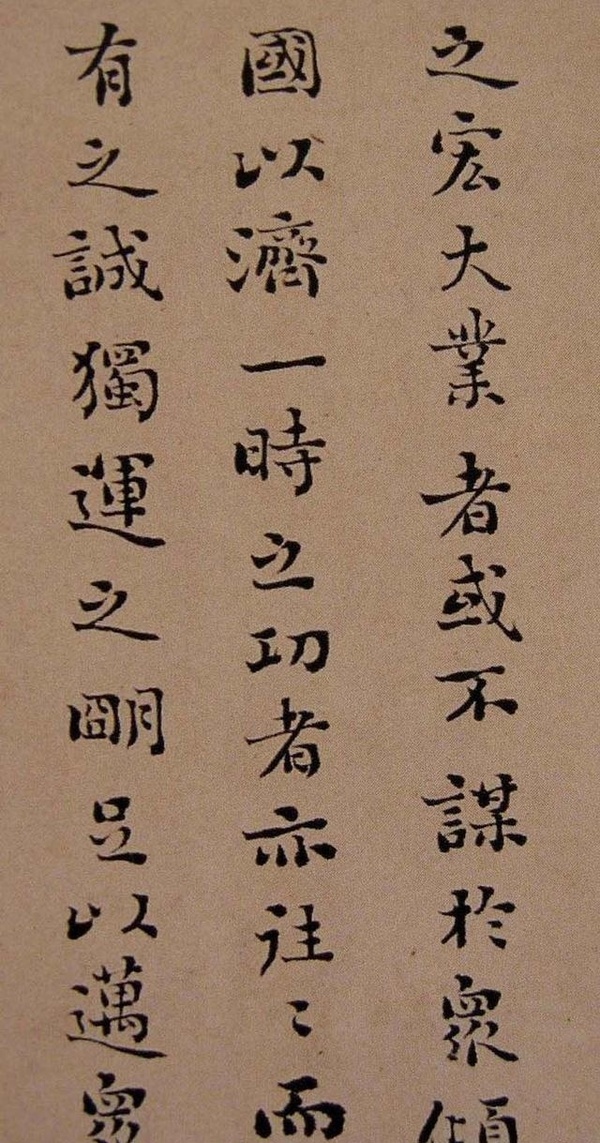 之宏大業者或不謀於衆傾
國以濟一時之功者亦往〻而
有之誠獨運之朙足以邁衆